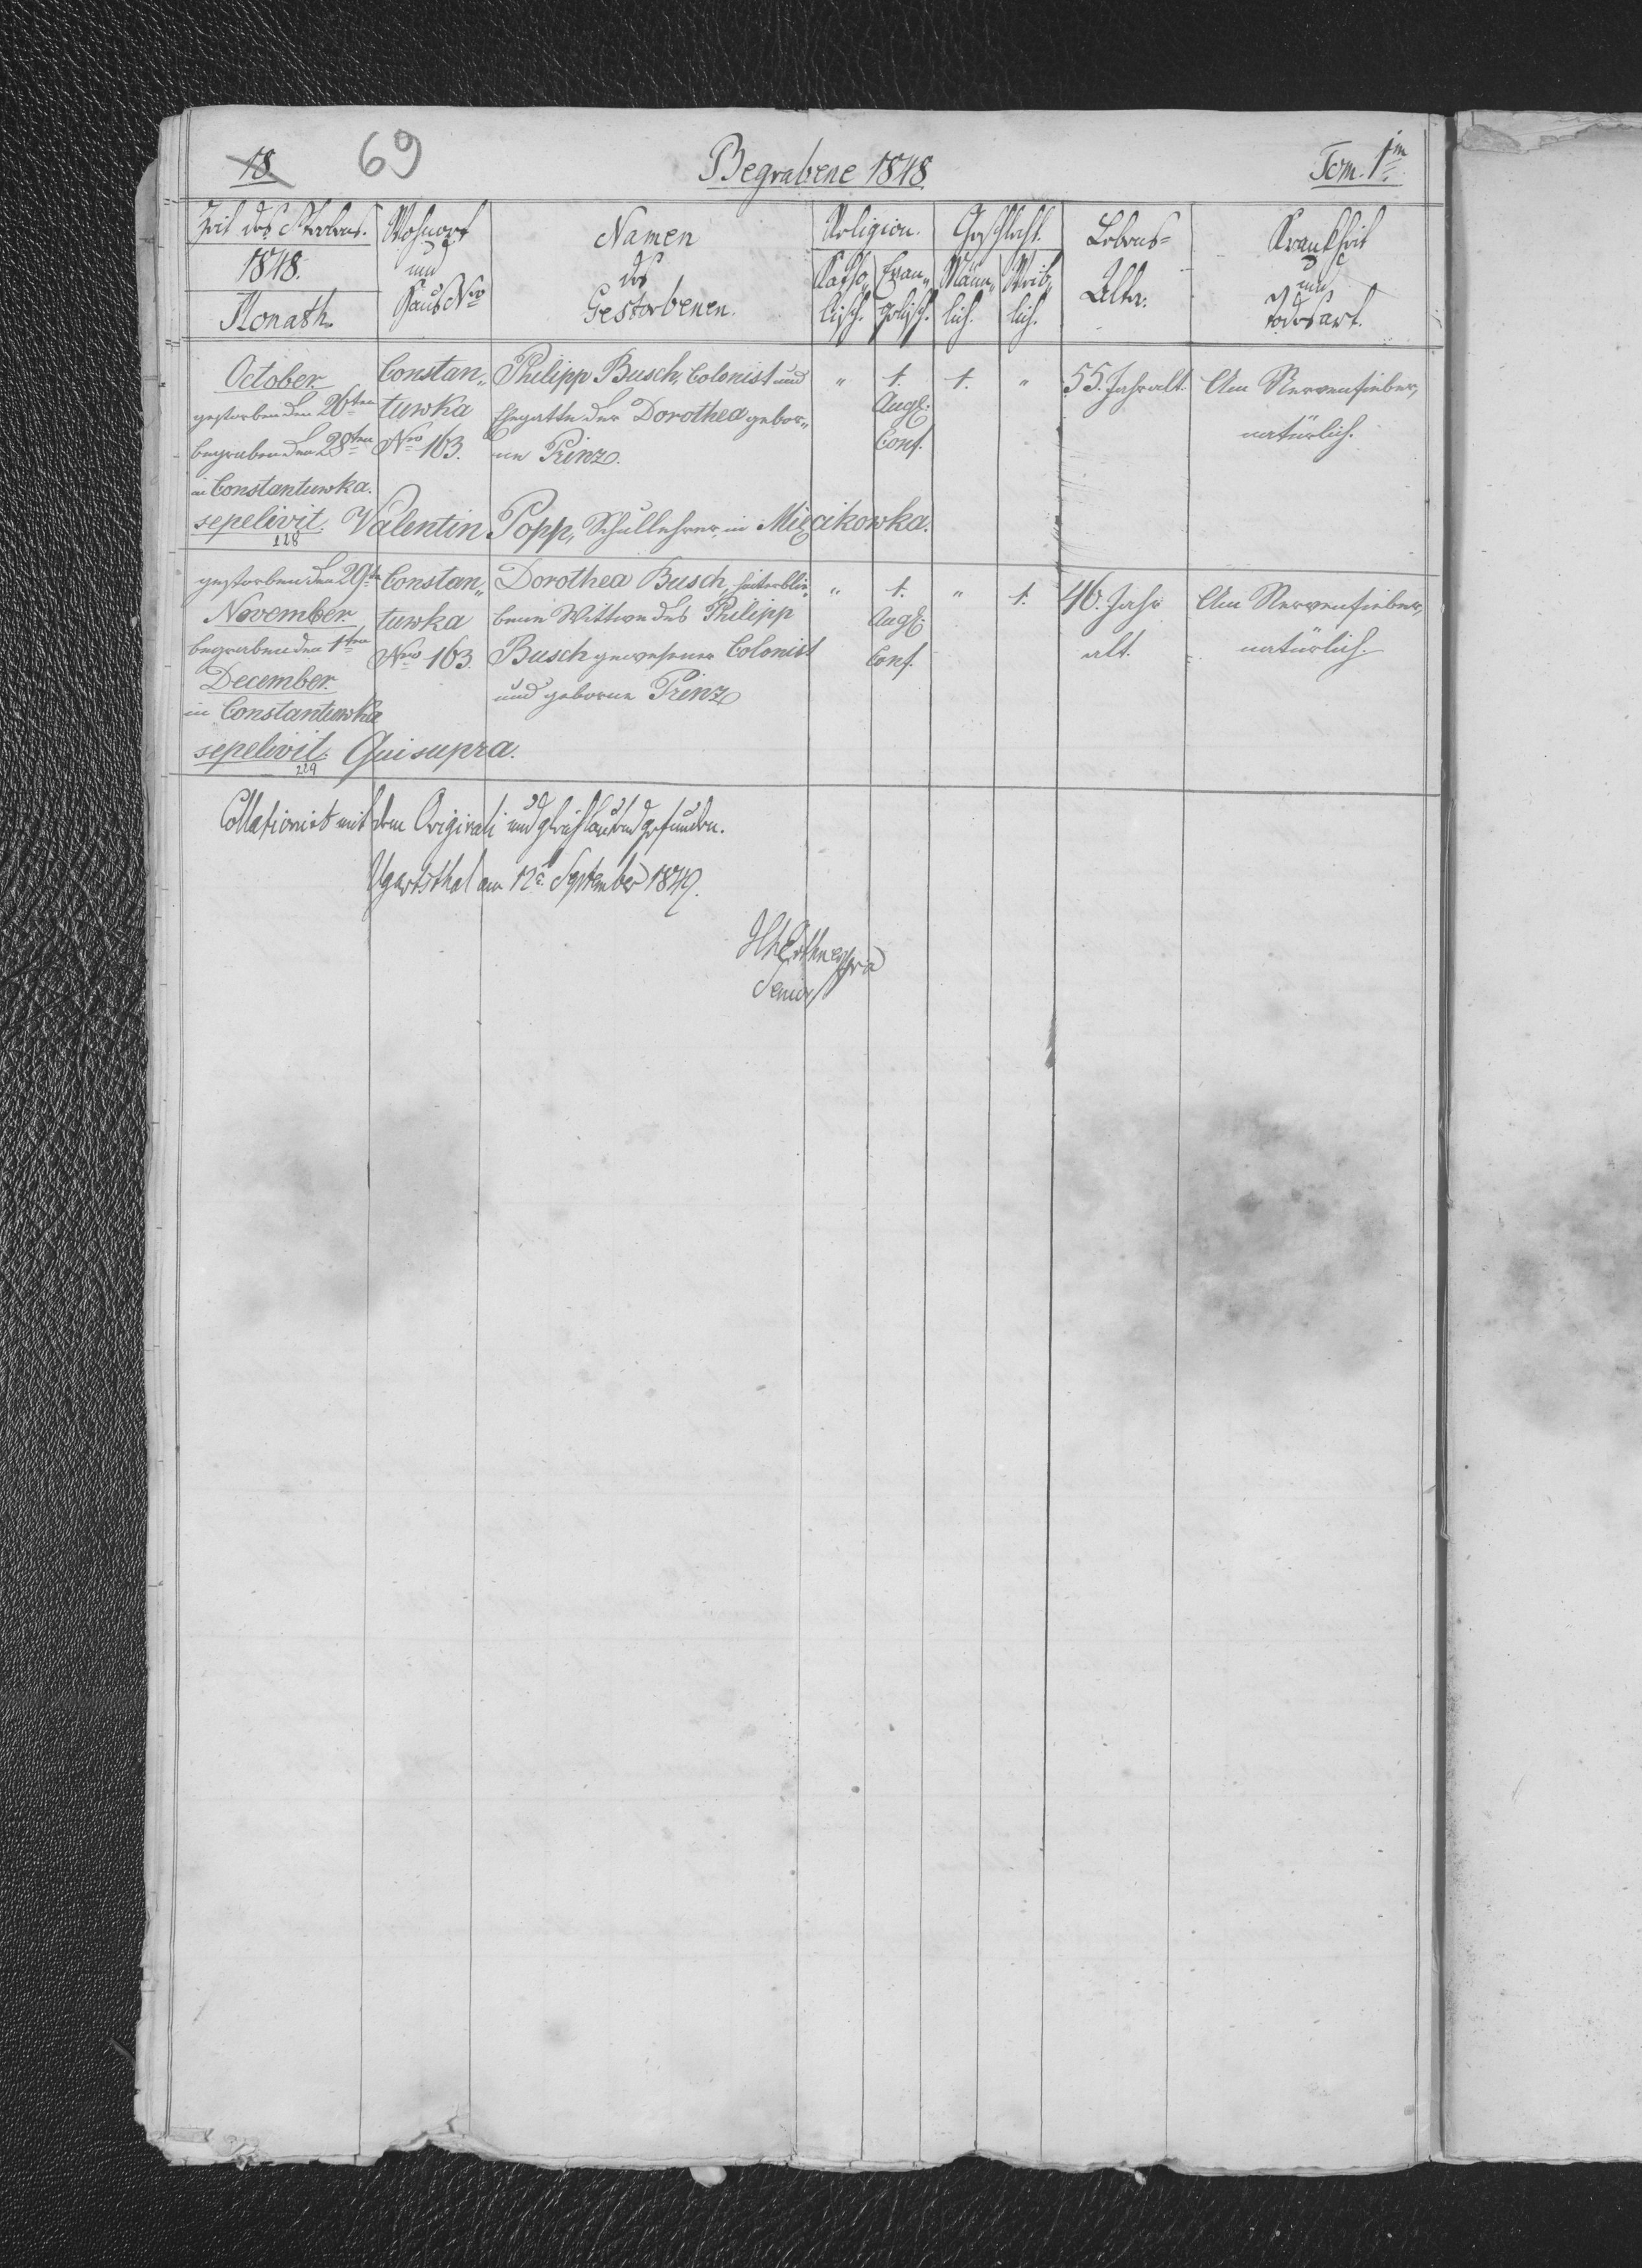 18
69
Begrabene 1848.
Tom. 1<sup>m</sup>
Zeit des Sterbens.
1848.
Monath.
Wohnort
und
Haus Nro
Namen
des
Gestorbenen.
Religion.
Katho„
lisch.
Evan„
gelisch.
Geschlecht.
Männ„
lich.
Weib„
lich.
Lebens=
Alter.
Krankheit
und
Todesart.
October.
gestorben den 26ten
begraben den 28ten
in Constantuwka.
Constan„
tuwka
Nro 163.
Philipp Busch, Colonist und
Ehegatte der Dorothea gebor„
ne Prinz.
„
1.
Augs:
Conf.
1.
„
55. Jahr alt.
Am Nervenfieber,
natürlich.
sepelivit. Valentin Popp, Schullehrer in Mięcikowka.
128
gestorben den 29ten
November.
begraben den 1ten
December.
in Constantuwka
Constan„
tuwka
Nro 163.
Dorothea Busch, hinterblie„
bene Wittwe des Philipp
Busch gewesener Colonist
und geborne Prinz
„
1.
Augs:
Conf.
„
1.
46. Jahr
alt.
Am Nervenfieber,
natürlich.
sepelivit. Qui supra.
129
Collationirt mit dem Originali und gleichlautend gefunden.
Ugartsthal am 12t September 1849.
Senior